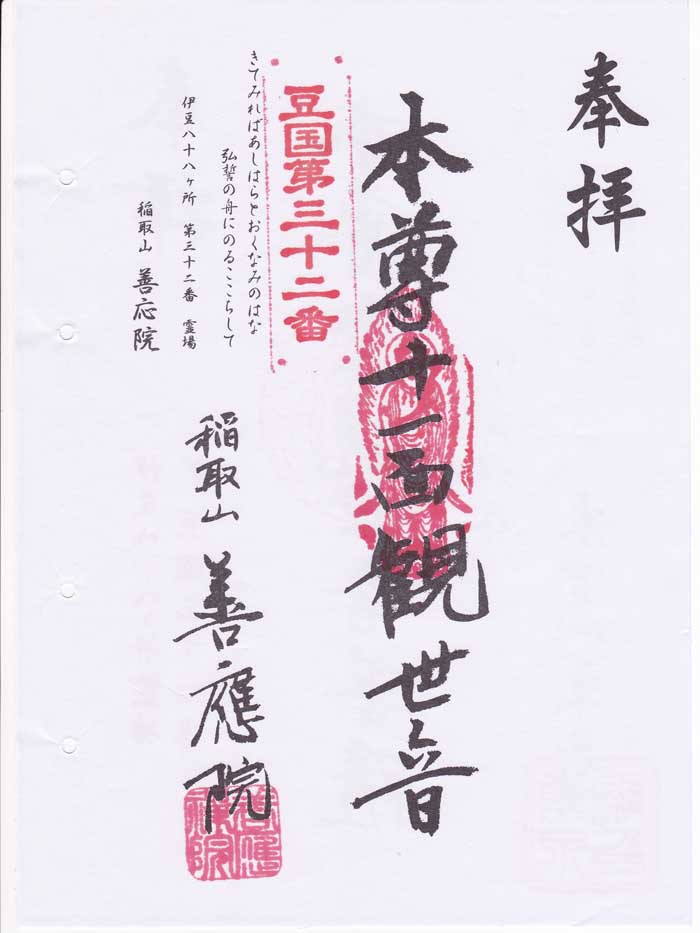 奉拝
本尊十一面観世音
豆国第三十二番
きてみればあしはらとおくなみのはな
弘誓の舟にのるここちして
伊豆八十八ヶ所 第三十二番 霊場
稲取山 善応院
稲取山 善應院
善應院